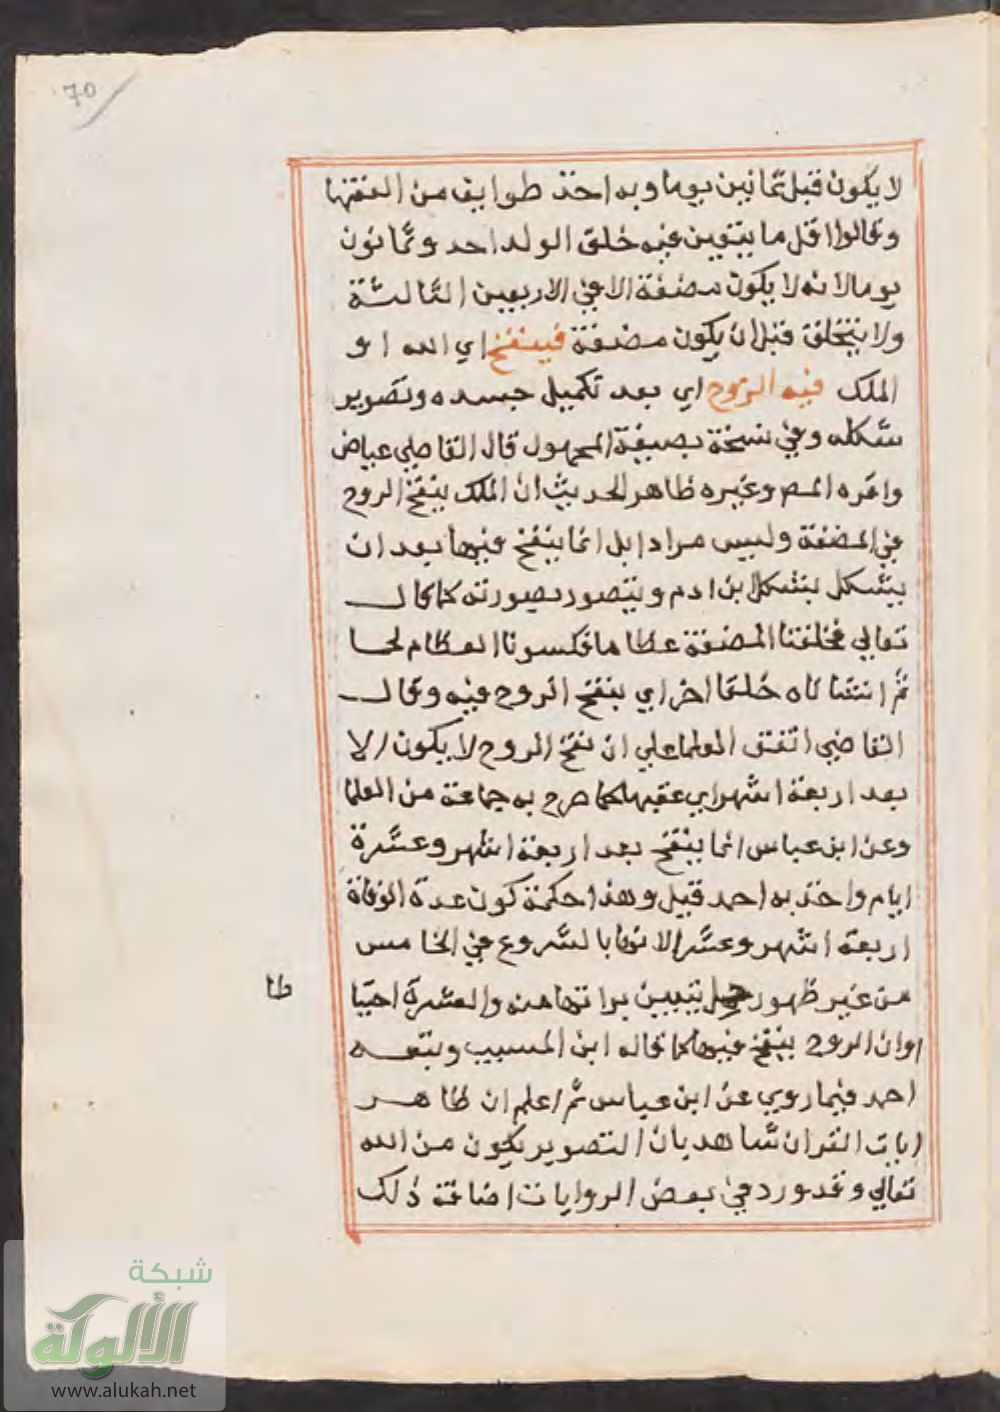 70
لا يكون قبل ثمانين يوما وبه اخذ طوايف من الفقها
وقالوا اقل ما يتبين فيه خلق الولد احد وثمانون
يوما لانه لا يكون مضغة الا في الاربعين الثالثة
ولا يتخلق قبل ان يكون مضغة فينفخ اي الله او
الملك فيه الروح اي بعد تكميل جسده وتصوير
شكله وفي نسخة بصيغة المجهول قال القاضي عياض
واقره المص وغيره ظاهر الحديث ان الملك ينفخ الروح
في المضغة وليس مرادا بل انما ينفخ فيها بعد ان
يتشكل بشكل ابن ادم ويتصور بصورته كما قال
تعالي فخلقنا المضغة عظاما فكسونا العظام لحما
ثم انشاناه خلقا اخر اي بنفخ الروح فيه وقال
القاضي اتفق العلما علي ان نفخ الروح لا يكون الا
بعد اربعة اشهر اي عقبها كما صرح به جماعة من العلما
وعن ابن عباس انما ينفخ بعد اربعة اشهر وعشرة
ايام واخذ به احمد قيل وهذا حكمة كون عدة الوفاة
اربعة اشهر وعشرا لانها بالشروع في الخامس
من غير ظهور حمل تتبين براتها منه والعشرة احتيا
طا
اوان الروح ينفخ فيها كما قاله ابن المسيب وتبعه
احمد فيما روي عن ابن عباس ثم اعلم ان ظاهر
ايات القران شاهد بان التصوير يكون من الله
تعالي وقد ورد في بعض الروايات اضافة ذلك
شبكة
الألوكة
www.alukah.net